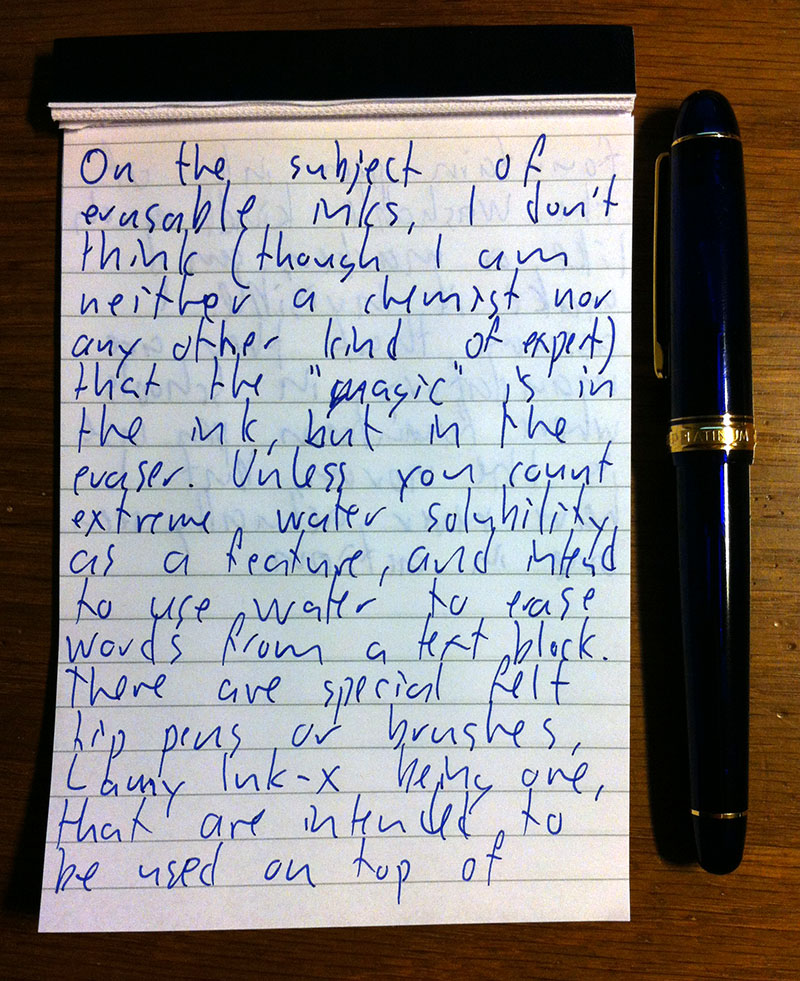 On the subject of
erasable inks, I don't
think (though I am
neither a chemist nor
any other kind of expert)
that the "magic" is in
the ink, but in the
eraser. Unless you count
extreme water solubility
as a feature, and intend
to use water to erase
words from a text block.
There are special felt
tip pens or brushes,
Lamy Ink-x being one,
that are intended to
be used on top of
PLATINUM